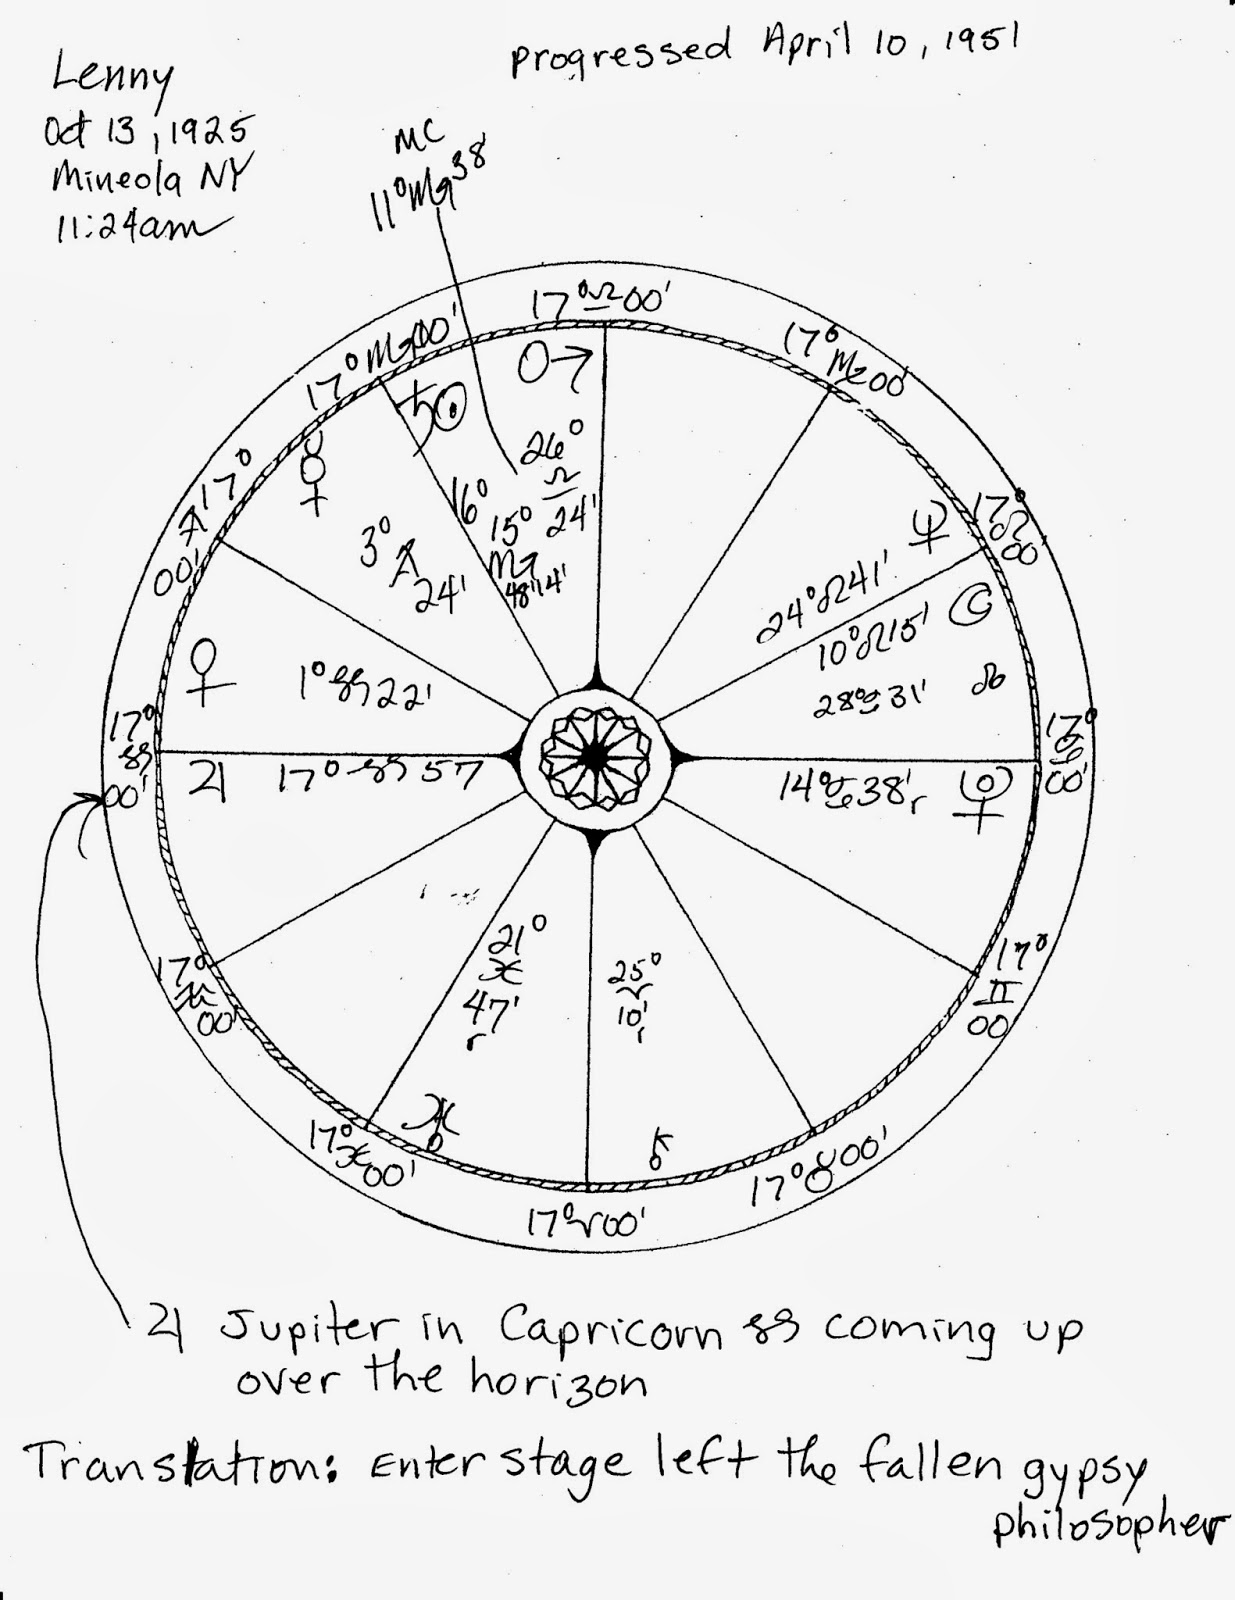 Progressed April 10, 1951
Lenny
Oct 13, 1925
Mineola NY
11:24am
MC
11°♏38'
17°♎00'
17°♏00'
17°♍00'
17°♐00'
17°♌00'
♄☉
♂
26°♎24'
16°
15°♏48'14'
☿
3°♐24'
♆
24°♌41'
☽
10°♌15'
☊
28°♋31'
♀
1°♑22'
17°♑00'
17°♋00'
♃ 17°♑57
14°♋38'r
♇
17°♒00'
17°♊00
21°♓47'r
25°♈10'r
♅
⚷
17°♓00'
17°♉00'
17°♈00'
♃ Jupiter in Capricorn ♑ coming up
over the horizon
Translation: Enter stage left the fallen gypsy
philosopher